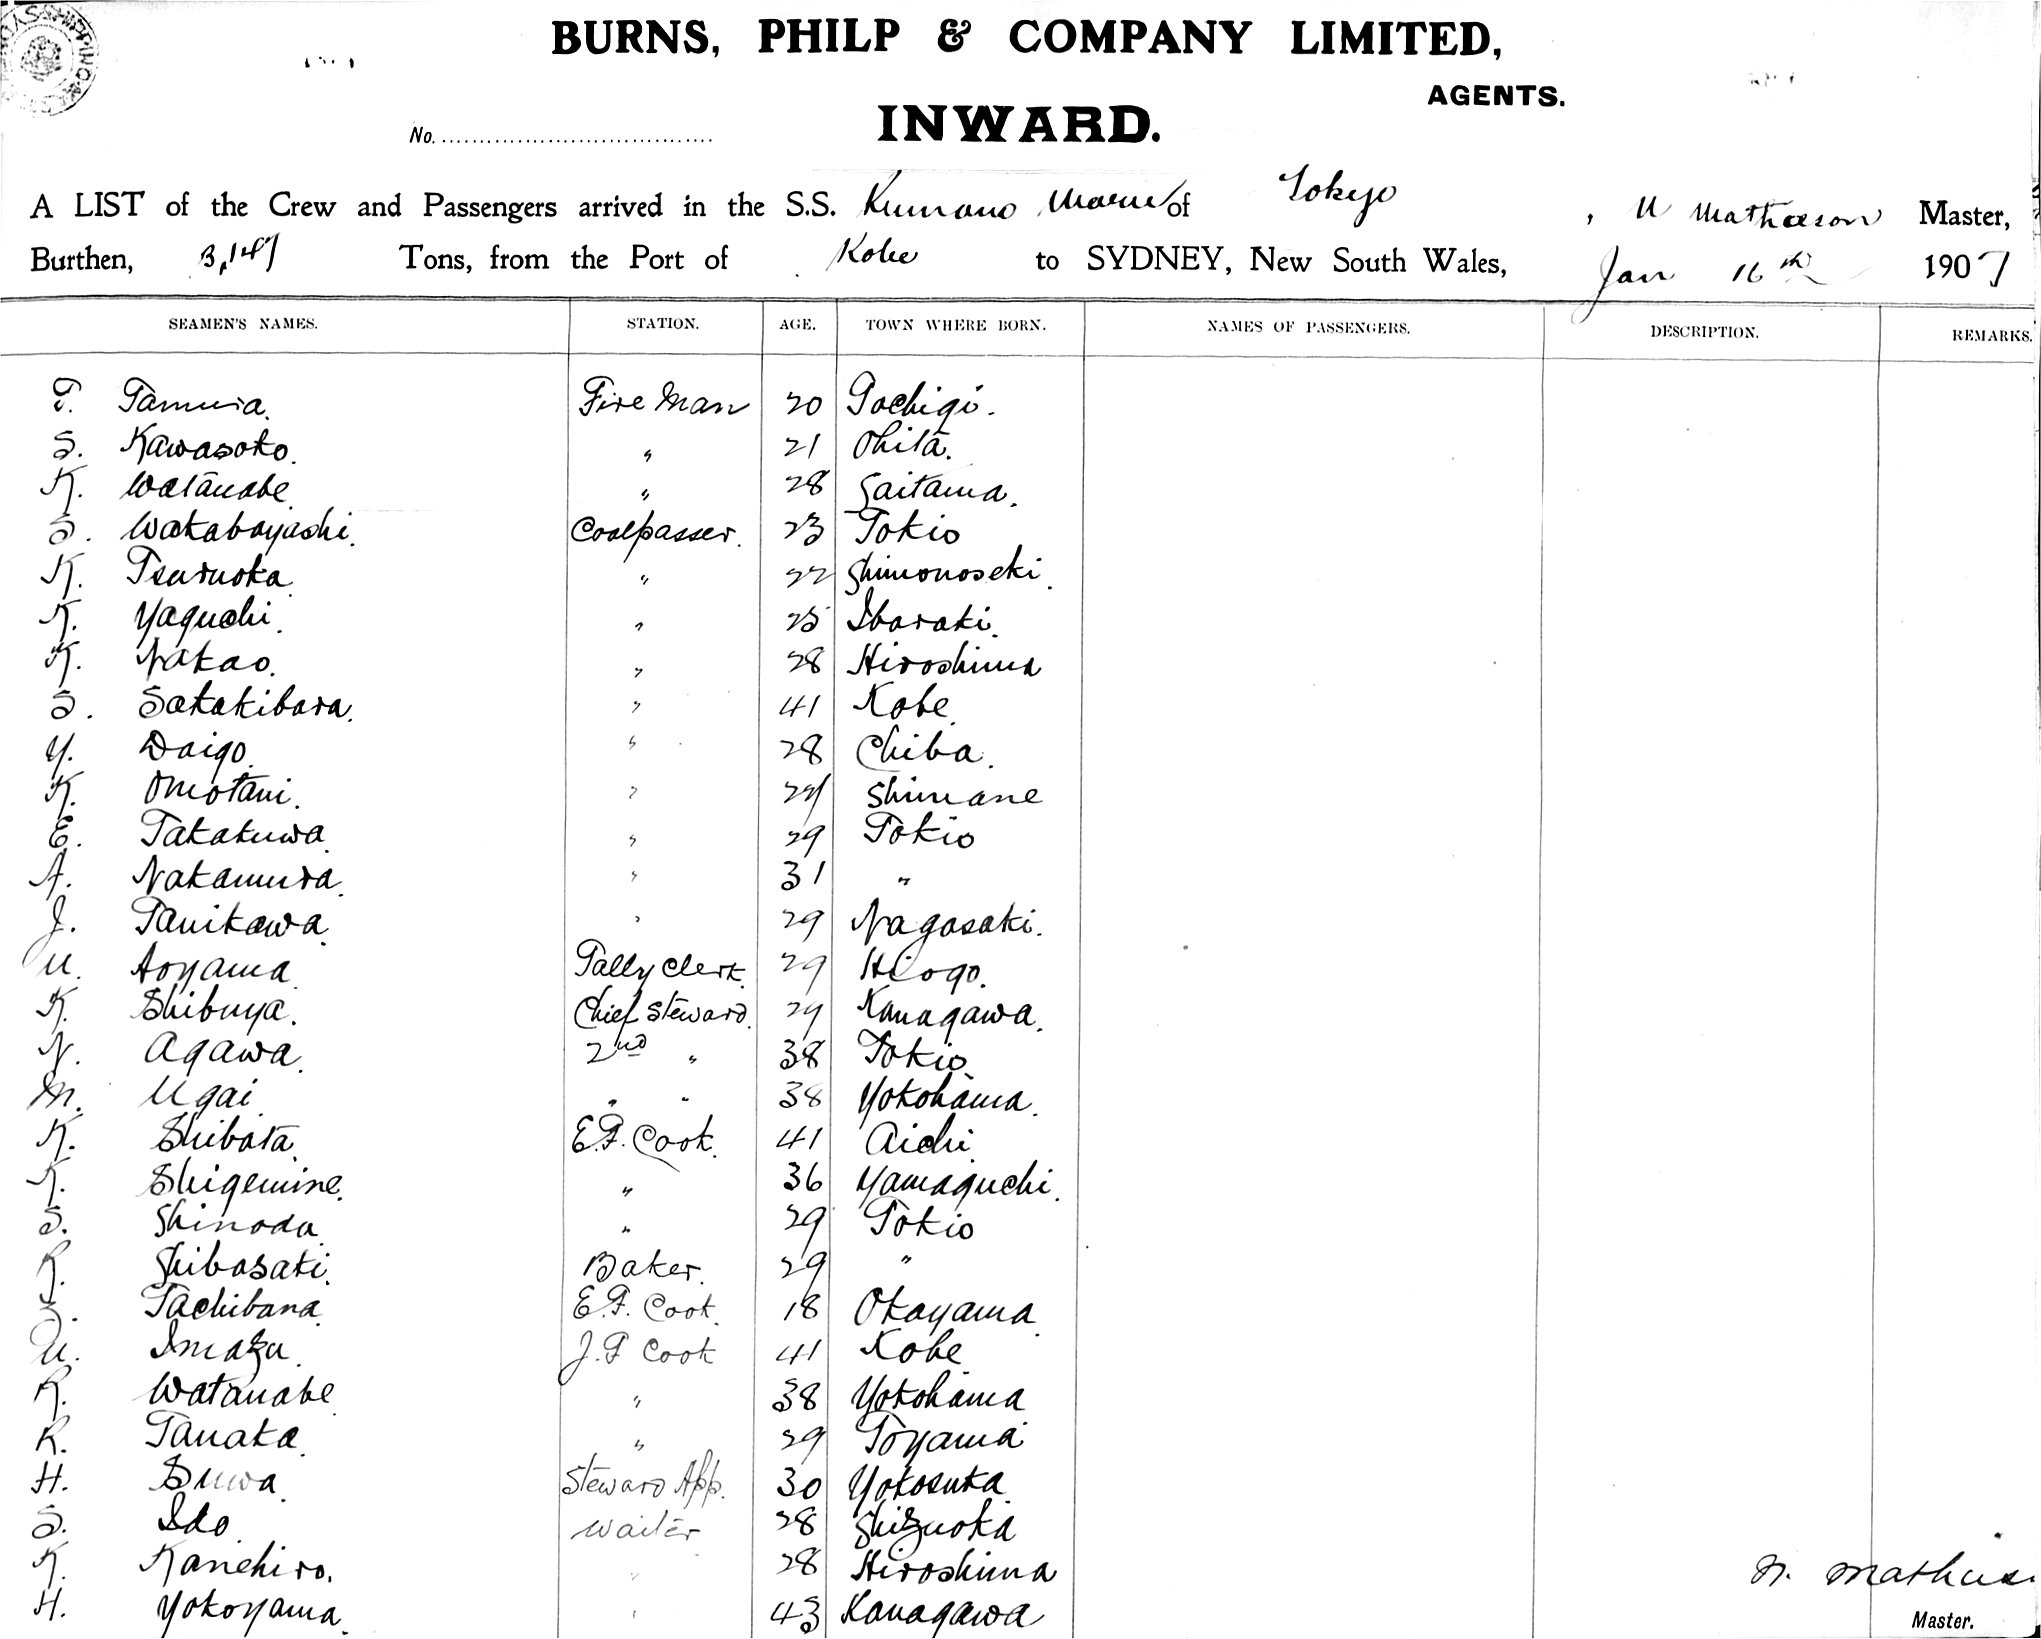 BURNS, PHILP & COMPANY LIMITED,
AGENTS.
INWARD.
No.
A LIST of the Crew and Passengers arrived in the S.S. Kumano Maru of Tokyo, Matheson Master,
Burthen, 3,147 Tons, from the Port of Kobe to SYDNEY, New South Wales, Jan 16th 1907
SEAMEN'S NAMES. STATION. AGE. TOWN WHERE BORN. NAMES OF PASSENGERS. DESCRIPTION. REMARKS.
T. Tamura. Fire Man 20 Tochigi.
S. Kawasoko. " 21 Ohita.
K. Watanabe " 28 Saitama.
S. Wakabayashi. Coalpasser. 23 Tokio
K. Tsuruoka " 22 Shimonoseki.
K. Yaguchi. " 25 Ibaraki.
K. Nakao. " 28 Hiroshima
S. Sakakibara. " 41 Kobe.
Y. Daigo. " 28 Chiba.
K. Omotani. " 24 Shimane
E. Takakuwa. " 29 Tokio
A. Nakamura. " 31 "
J. Tanikawa. " 29 Nagasaki.
U. Aoyama. Tally Clerk. 29 Hiogo.
K. Shibuya. Chief Steward. 29 Kanagawa.
N. Agawa. 2nd " 38 Tokio.
M. Ugai " " 38 Yokohama.
K. Shibata. E.F. Cook. 41 Aichi.
K. Shigemine. " 36 Yamaguchi.
S. Shinoda. " 29 Tokio
K. Shibasaki. Baker. 29 "
Tachibana. E.F. Cook. 18 Okayama.
U. Imazu. J.F Cook 41 Kobe.
K. Watanabe " 38 Yokohama
K. Tanaka. " 29 Toyama
H. Suwa. Steward App. 30 Yokosuka.
S. Ido. Waiter 28 Shizuoka
K. Kanehiro. " 28 Hiroshima
H. Yokoyama. " 43 Kanagawa
Master.